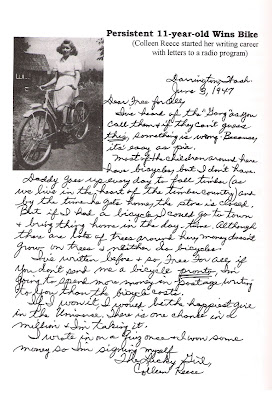 Persistent 11-year-old Wins Bike
(Colleen Reece started her writing career
with letters to a radio program)
Darrington, Wash.
June 3, 1947
Dear Free for All,
I've heard of the "Gong" as you
call them & if they can't guess
this, something is wrong. Because,
it's easy as pie.
Most of the children around here
have bicycles but I don't have.
Daddy goes up every day to fall timber (as
we live in the heart of the timber country) and
by the time he gets home, the store is closed.
But if I had a bicycle I could go to town
& bring things home in the day-time. Although
there are lots of trees around here, money doesn't
grow on trees & neither do bicycles.
I've written before & so, Free For All if
you don't send me a bicycle pronto, I'm
going to spend more money on postage writing
to you than the bicycle costs.
If I won it, I would be the happiest girl
in the Universe. There is one chance in a
million & I'm taking it.
I wrote in on a quiz once & I won some
money so I'm signing myself
The Lucky Girl,
Colleen Reece